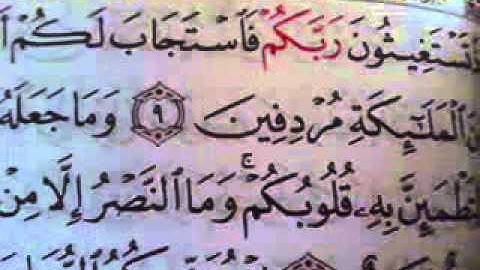 تَسْتَغِيثُونَ رَبَّكُمْ فَٱسْتَجَابَ لَكُمْ أَ
ٱلْمَلَٰٓئِكَةِ مُرْدِفِينَ ٩ وَمَا جَعَلَهُ
تَطْمَئِنَّ بِهِۦ قُلُوبُكُمْ ۚ وَمَا ٱلنَّصْرُ إِلَّا مِنْ